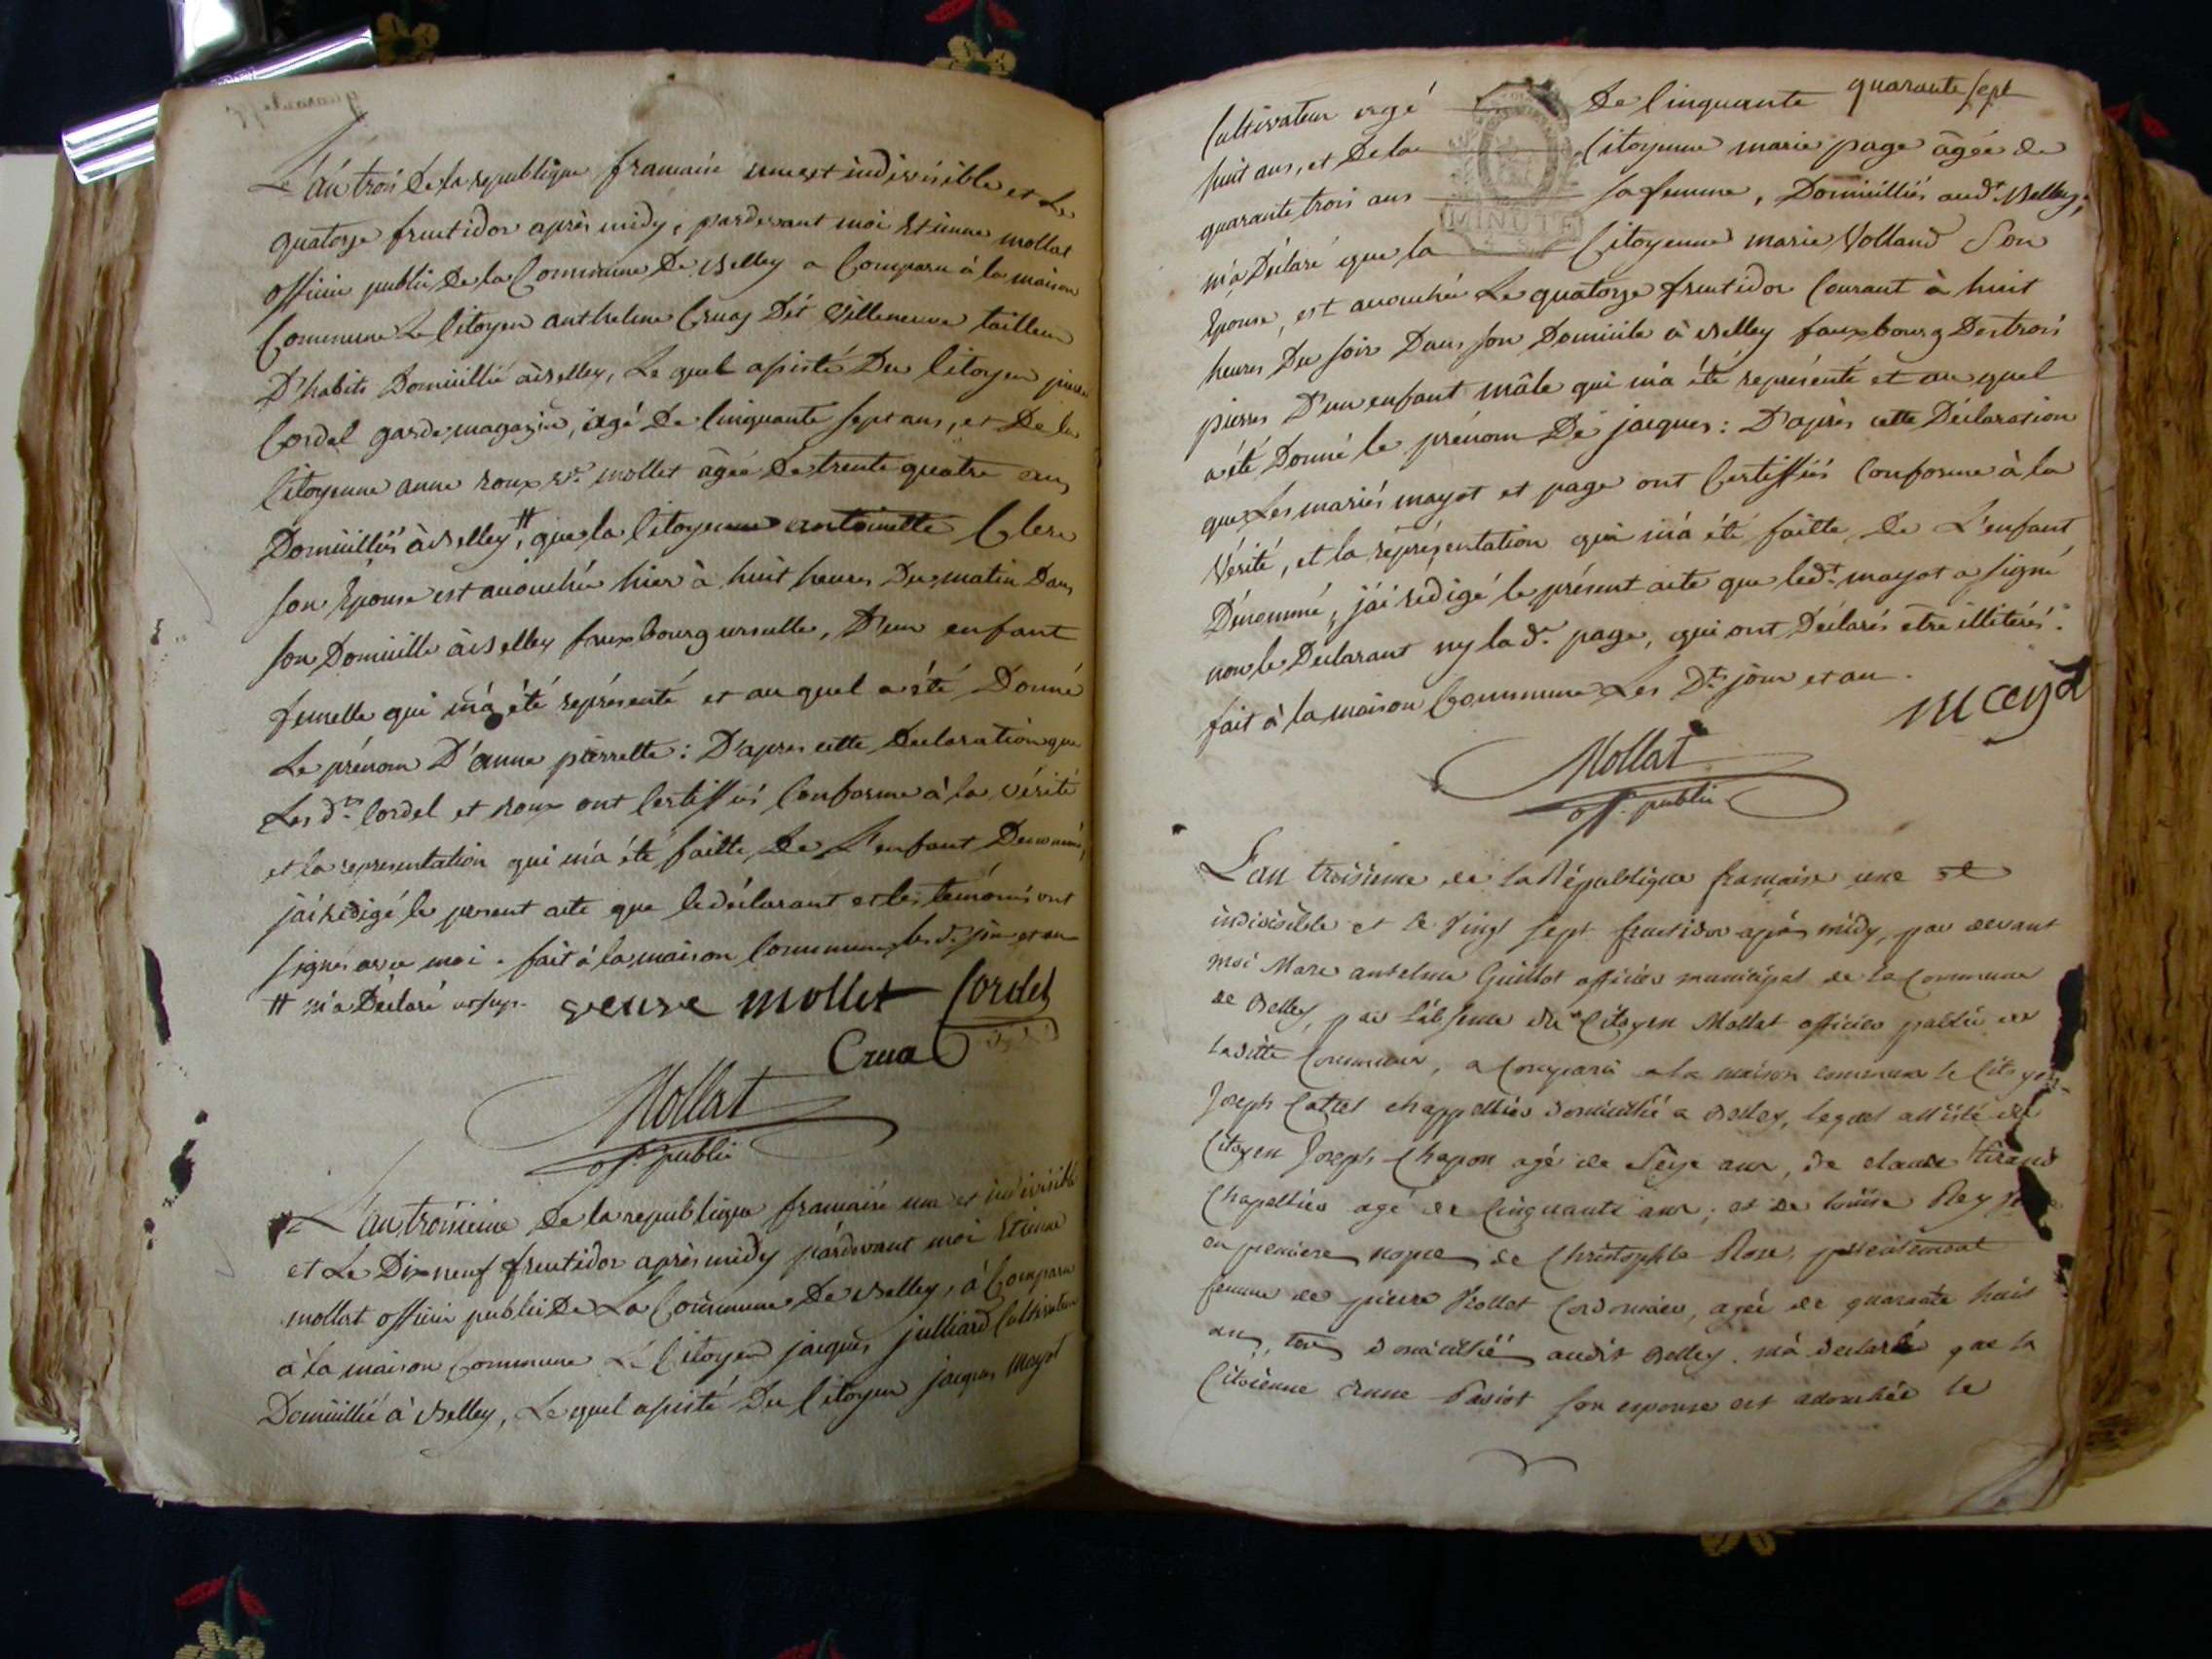 L'an trois de la republique francaise une et indivisible et le
quatorze fructidor après midy, pardevant moi Etienne mollat
officier public de la Commune de Belley a Comparu à la maison
Commune Le Citoyen anthelme Cruaz dit Villeneuve tailleur
D'habits Domicillié à Belley, Le quel assisté Du Citoyen pierre
Cordel garde magazin, agé De Cinquante sept ans, et De la
Citoyenne anne roux vve mollet âgée De trente quatre ans,
Domicilliés à Belley # que la Citoyenne antoinette Clerc
son Epouse est accouchée hier à huit heures Du matin Dans
son Domicille à Belley fauxbourg ursulle, D'un enfant
femelle qui m'a été représenté et au quel a été Donné
Le prénom D'anne pierrette : D'après cette Declaration que
Les dts Cordel et roux ont Certiffiés Conforme à la vérité
et la representation qui m'a été faitte De L'enfant Denommé,
j'ai rédigé le present acte que le déclarant et les temoins ont
signés avec moi . fait à la maison Commune les d. jour et an
# m'a Déclaré mollet Cordel
Crua
Mollat
off. public
L'an troisieme De la republique francaise une et indivisible
et Le Dixneuf fructidor après midy pardevant moi Etienne
mollat officier public De La Commune De Belley, à Comparu
à la maison Commune Le Citoyen jacques julliard Cultivateur
Domicillié à Belley, Le quel assisté Du Citoyen jacques Mayot
quarante sept
Cultivateur agé De Cinquante
huit ans, et De la Citoyenne marie page âgée de
quarante trois ans sa femme, Domicilliés aud. Belley,
MINUTE
m'a Déclaré que la Citoyenne marie Volland Son
Epouse, est accouchée Le quatorze fructidor Courant à huit
heures Du soir Dans son Domicile à Belley fauxbourg Des trois
pierres D'un enfant mâle qui m'a été représenté et au quel
a été Donné le prénom De jacques : D'après cette Déclaration
que Les mariés mayot et page ont Certiffiés Conforme à la
Vérité, et la représentation qui m'a été faitte De L'enfant
Dénommé, j'ai redigé le présent acte que led. mayot a signé
non le Declarant ny la de. page, qui ont Déclarés etre illitérés.
fait à la maison Commune Les Dts jour et an .
Mollat
off. public
L'an troisieme de la République française une et
indivisible et le Vingt sept fructidor après midy, par devant
moi Marc anthelme Guillot officier municipal de la Commune
de Belley, par l'absence du Citoyen Mollat officier public de
laditte Commune, a Comparu a la maison commune le Citoyen
Joseph Cattet chappellier domicillié a Belley, lequel assisté de
Citoyen Joseph Chapon agé de seize ans, de claude
Chapellier agé de Cinquante ans, et de louise Rey
en premiere noce de Christophle Rose, presentement
femme de pierre Mollat Cordonnier, agée de quarante huit
ans, tous domicilliés audit Belley. m'à declaré que la
Citoienne anne Paviot son epouse est accouchée le